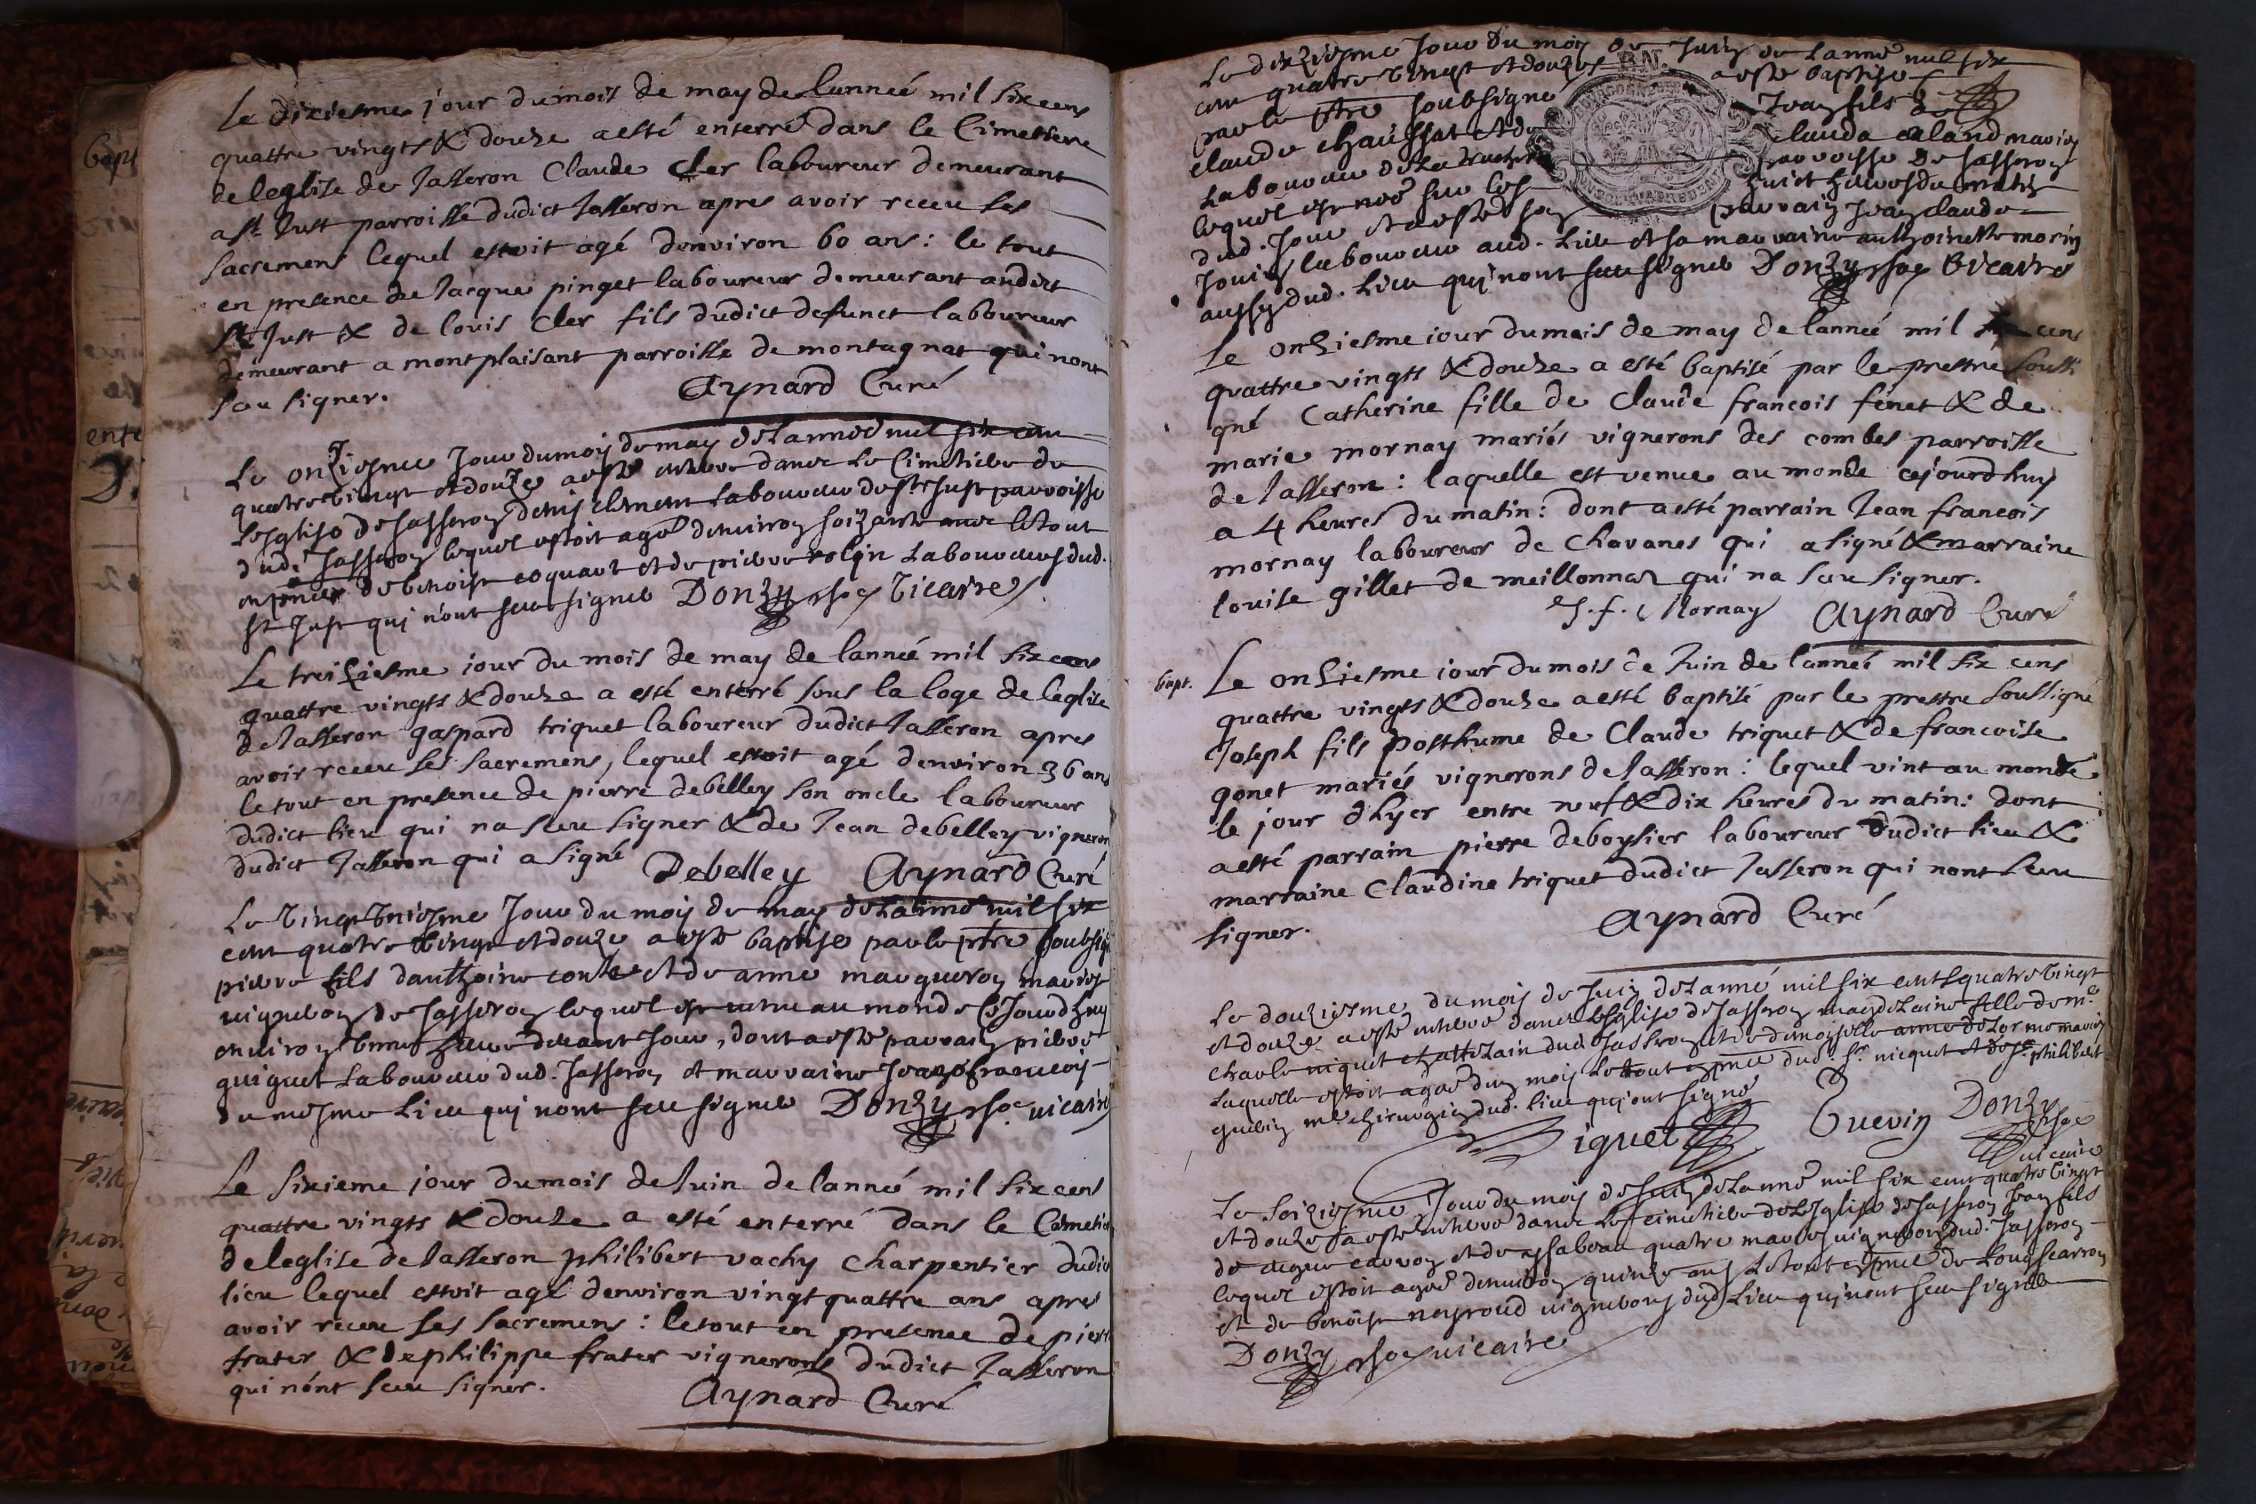 Le dixiesme jour du mois de may de lanneé mil six cens
quattre vingts & douze a esté enterré dans le Cimettiere
de leglise de Jasseron Claude Cler laboureur demeurant
a st. Just parroisse dudict Jasseron apres avoir receu ses
sacremens lequel estoit agé denviron 60 ans : le tout
en presence de Jacque pinget laboureur demeurant audict
st. Just & de lovis Cler fils dudict defunct laboureur
demeurant a montplaisant parroisse de montagnat qui nont
sceu signer.
Aynard Curé
Le onziesme Jour du moy de may de lanneé mil six cen
quatre vingt et douze a esté enterre dans le Cimetiere de
lesglise de Jasseron denis laboureur de st Just parroisse
dud. Jasseron lequel estoit agé denviron soizante le tout
en pnce de benoist coquard et de pierre rolin laboureurs dud.
st Just qui n'ont sceu signer Donzy vicaire
Le treiziesme jour du mois de may de lanneé mil six cens
quattre vingts & douze a esté enterré sous la loge de leglise
de Jasseron gaspard triquet laboureur dudict Jasseron apres
avoir receu ses sacremens, lequel estoit agé denviron 36 ans
le tout en presence de pierre debelley son oncle laboureur
dudict lieu qui na sceu signer & de Jean debelley vigneron
dudict Jasseron qui a signé
Debelley Aynard Curé
Le vingt uniesme Jour du moy de may de lanné mil six
cen quatre vingt et douze a esté baptise par le ptre soubsig
pierre fils danthoine conte et de anne maugueron mariés
vigneron de Jasseron lequel est venu au monde cejourdhuy
environ heure devant Jour, dont a esté parrain pierre
guiguet laboureur dud. Jasseron et marraine francois
du mesme lieu qui nont sceu signer Donzy vicaire
Le sixieme jour du mois de Juin de lanneé mil six cens
quattre vingts & douze a esté enterré dans le Cimetie
de leglise de Jasseron philibert vachy charpentier dudic
lieu lequel estoit agé denviron vingt quattre ans apres
avoir receu ses sacremens : le tout en presence de pierr
frater & de philippe frater vignerons dudict Jasseron
qui nont sceu signer.
Aynard Curé
Le dixziesme Jour du moy de Juin de lanné mil six
cen quatre vingt et douze a esté baptise
par le ptre soubsigné Jean fils
claude chaussat et de claude mariés
laboureur de la parroisse de Jasseron
lequel est né sur les huict heures du matin
dud. Jour et a esté son parrain Jean claude
Jouis laboureur aud. lieu et sa marraine anthoinette morin
aussy dud. lieu qui nont sceu signer Donzy vicaire
B.N.
Le onziesme jour du mois de may de lanneé mil cens
quattre vingts & douze a esté baptisé par le prestre soussi
gné Catherine fille de Claude francois fenet & de
marie mornay mariés vignerons des combes parroisse
de Jasseron : laquelle est venue au monde cejourdhuy
a 4 heures du matin : dont a esté parrain Jean francois
mornay laboureur de Chavanes qui a signé & marraine
louise gillet de meillonnaz qui na sceu signer.
J. f. Mornay Aynard Curé
bapt. Le onziesme jour du mois de Juin de lanneé mil six cens
quattre vingts & douze a esté baptisé par le prestre soussigné
Joseph fils posthume de Claude triquet & de francoise
gonet mariés vignerons de Jasseron : lequel vint au monde
le jour dhyer entre neuf & dix heures du matin : dont
a esté parrain pierre deboysier laboureur dudict lieu &
marraine Claudine triquet dudict Jasseron qui nont sceu
signer.
Aynard Curé
Le douziesme du mois de Juin de lanné mil six cent quatre vingt
et douze a esté enterré dans lesglise de Jasseron magdelaine fille de mre
charle niquet chattelain dud. Jasseron et de demoiselle anne delorme mariés
laquelle estoit agée dun mois le tout en pnce dud. sr. nicquet et de philibert
guerin mre chirurgien dud. lieu qui ont signé
iquet Guerin Donzy
vicaire
Le seiziesme Jour du moy de Juin de lanné mil six cent quatre vingt
et douze a esté enterré dans le cimetiere de lesglise de Jasseron Jean fils
de carron et de ysabeau quatre mariés vignerons dud. Jasseron
lequel estoit agé denviron quinze ans le tout en pnce de Louis carron
et de benoist neyroud vignerons dud. lieu qui nont sceu signer
Donzy vicaire